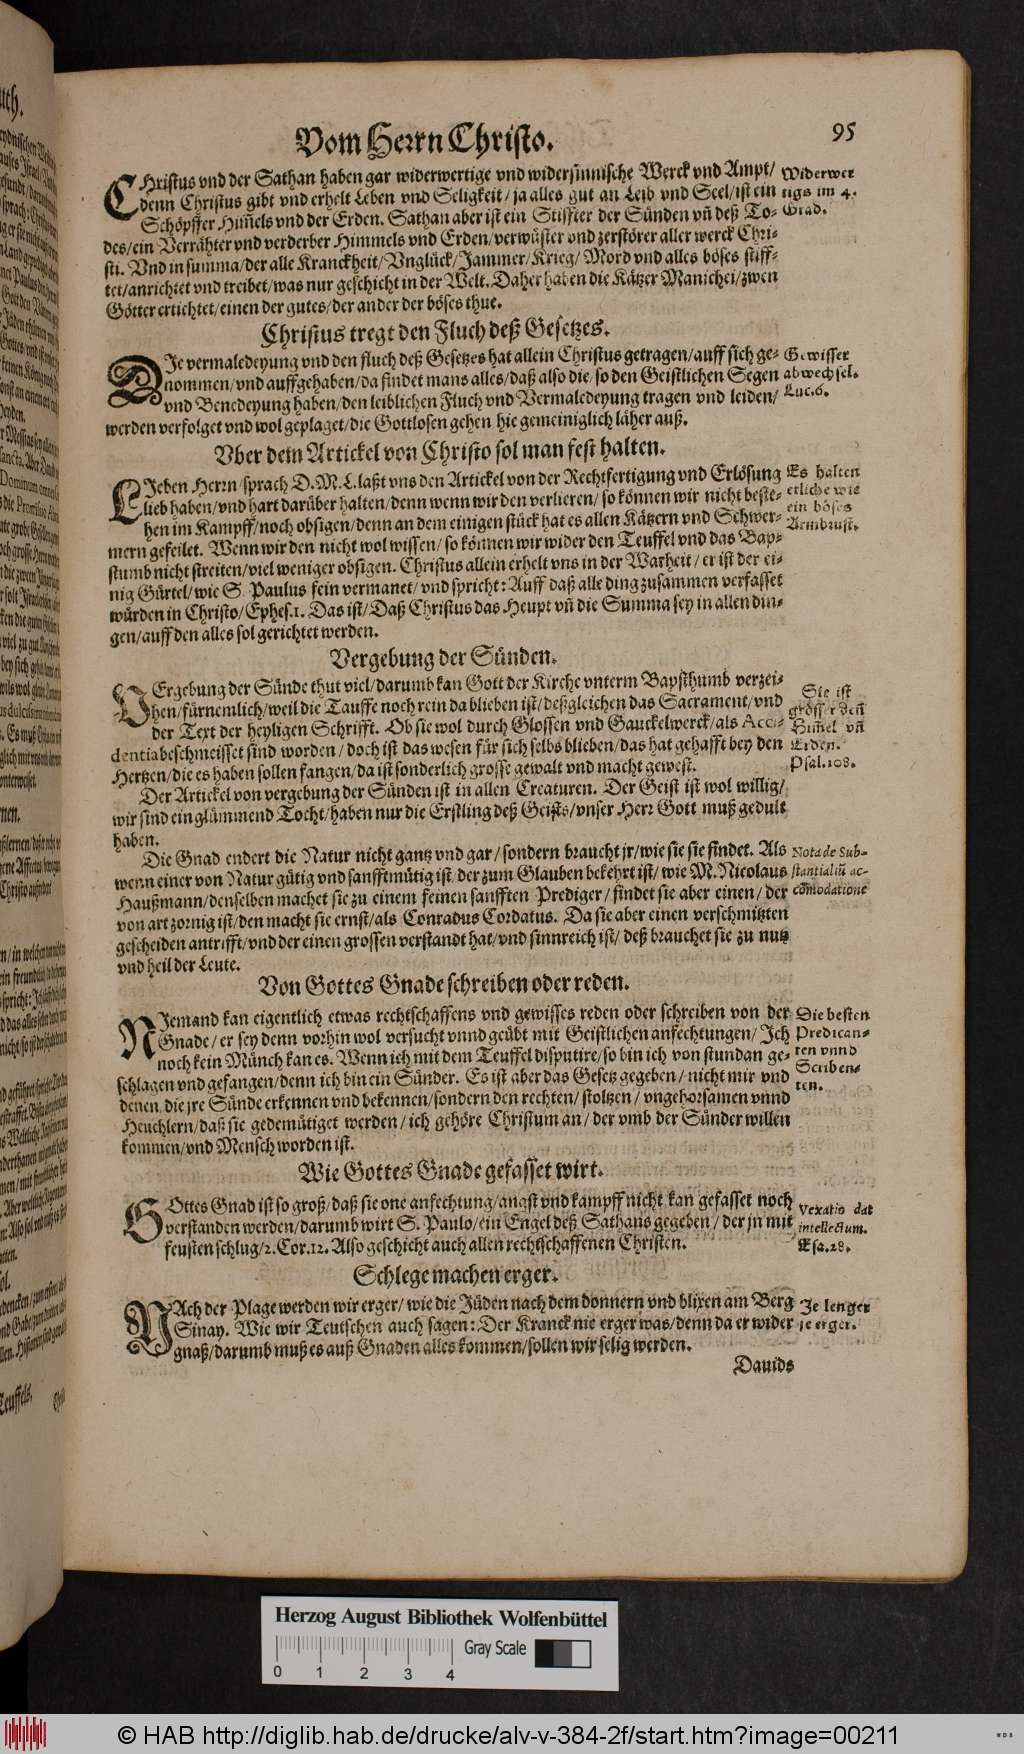 Vom Herrn Christo. 95
CHristus vnd der Sathan haben gar widerwertige vnd widersinnische Werck vnd Ampt/
denn Christus gibt vnd erhelt Leben vnd Seligkeit/ ja alles gut an Leib vnd Seel/ ist ein
Schöpffer Him̃els vnd der Erden. Sathan aber ist ein Stiffter der Sünden vñ deß To-
des/ ein Verrähter vnd verderber Himmels vnd Erden/ verwüster vnd zerstörer aller werck Chri-
sti. Vnd in summa/ der alle Kranckheit/ Vnglück/ Jammer/ Krieg/ Mord vnd alles böses stiff-
tet/ anrichtet vnd treibet/ was nur geschicht in der Welt. Daher haben die Kätzer Manichei/ zwen
Götter ertichtet/ einen der gutes/ der ander der böses thue.
Widerwer
tigs im 4.
Grad.
Christus tregt den Fluch deß Gesetzes.
DJe vermaledeyung vnd den fluch deß Gesetzes hat allein Christus getragen/ auff sich ge-
nommen/ vnd auffgehaben/ da findet mans alles/ daß also die/ so den Geistlichen Segen
vnd Benedeyung haben/ den leiblichen Fluch vnd Vermaledeyung tragen vnd leiden/
werden verfolget vnd wol geplaget/ die Gottlosen gehen hie gemeiniglich läher auß.
Gewisser
abwechsel.
Luc. 6.
Vber dem Artickel von Christo sol man fest halten.
LJeben Herrn/ sprach D. M. L. laßt vns den Artickel von der Rechtfertigung vnd Erlösung
lieb haben/ vnd hart darüber halten/ denn wenn wir den verlieren/ so können wir nicht beste-
hen im Kampff/ noch obsigen/ denn an dem einigen stück hat es allen Kätzern vnd Schwer-
mern gefeilet. Wenn wir den nicht wol wissen/ so können wir wider den Teuffel vnd das Bap-
stumb nicht streiten/ viel weniger obsigen. Christus allein erhelt vns in der Warheit/ er ist der ei-
nig Gürtel/ wie S. Paulus fein vermanet/ vnd spricht: Auff daß alle ding zusammen verfasset
würden in Christo/ Ephes. 1. Das ist/ Daß Christus das Heupt vñ die Summa sey in allen din-
gen/ auff den alles sol gerichtet werden.
Es halten
etliche wie
ein böses
Armbrust.
Vergebung der Sünden.
VErgebung der Sünde thut viel/ darumb kan Gott der Kirche vnterm Bapsthumb verzei-
hen/ fürnemlich/ weil die Tauffe noch rein da blieben ist/ deßgleichen das Sacrament/ vnd
der Text der heyligen Schrifft. Ob sie wol durch Glossen vnd Gauckelwerck/ als Acci-
dentia beschmeisset sind worden/ doch ist das wesen für sich selbs blieben/ das hat gehafft bey den
Hertzen/ die es haben sollen fangen/ da ist sonderlich grosse gewalt vnd macht gewest.
Sie ist
grösser deñ
Him̃el vñ
Erden.
Psal. 108.
Der Artickel von vergebung der Sünden ist in allen Creaturen. Der Geist ist wol willig/
wir sind ein glümmend Tocht/ haben nur die Erstling deß Geists/ vnser Herr Gott muß gedult
haben.
Die Gnad endert die Natur nicht gantz vnd gar/ sondern braucht jr/ wie sie sie findet. Als
wenn einer von Natur gütig vnd sanfftmütig ist, der zum Glauben bekehrt ist/ wie M. Nicolaus
Haußmann/ denselben machet sie zu einem feinen sanfften Prediger/ findet sie aber einen/ der
von art zornig ist/ den macht sie ernst/ als Conradus Cordatus. Da sie aber einen verschmitzten
gescheiden antrifft/ vnd der einen grossen verstandt hat/ vnd sinnreich ist/ deß brauchet sie zu nutz
vnd heil der Leute.
Nota de Sub-
stantialiũ ac-
cõmodatione
Von Gottes Gnade schreiben oder reden.
NJemand kan eigentlich etwas rechtschaffens vnd gewisses reden oder schreiben von der
Gnade/ er sey denn vorhin wol versucht vnnd geübt mit Geistlichen anfechtungen/ Jch
noch kein Münch kan es. Wenn ich mit dem Teuffel disputire/ so bin ich von stundan ge-
schlagen vnd gefangen/ denn ich bin ein Sünder. Es ist aber das Gesetz gegeben/ nicht mir vnd
denen, die jre Sünde erkennen vnd bekennen/ sondern den rechten/ stoltzen/ vngehorsamen vnnd
Heuchlern/ daß sie gedemütiget werden/ ich gehöre Christum an/ der vmb der Sünder willen
kommen/ vnd Mensch worden ist.
Die besten
Predican-
ten vnnd
Scriben-
ten.
Wie Gottes Gnade gefasset wirt.
GOttes Gnad ist so groß/ daß sie one anfechtung/ angst vnd kampff nicht kan gefasset noch
verstanden werden/ darumb wirt S. Paulo/ ein Engel deß Sathans gegeben/ der jn mit
feusten schlug/ 2. Cor. 12. Also geschicht auch allen rechtschaffenen Christen.
Vexatio dat
intellectum.
Esa. 28.
Schlege machen erger.
NAch der Plage werden wir erger/ wie die Jüden nach dem donnern vnd blixen am Berg
Sinay. Wie wir Teutschen auch sagen: Der Kranck nie erger was/ denn da er wider
gnaß/ darumb muß es auß Gnaden alles kommen/ sollen wir selig werden.
Je lenger
je erger.
Dauids
Herzog August Bibliothek Wolfenbüttel
Gray Scale
0 1 2 3 4
© HAB http://diglib.hab.de/drucke/alv-v-384-2f/start.htm?image=00211